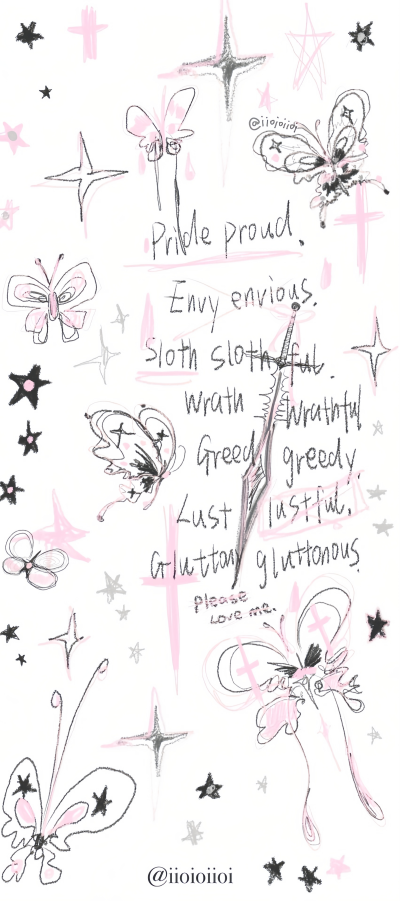 @iiojoiioi
Pride proud.
Envy envious.
Sloth slothful.
Wrath wrathful
Greed greedy
Lust lustful.
Gluttony gluttonous.
please
Love me.
@iioioiioi